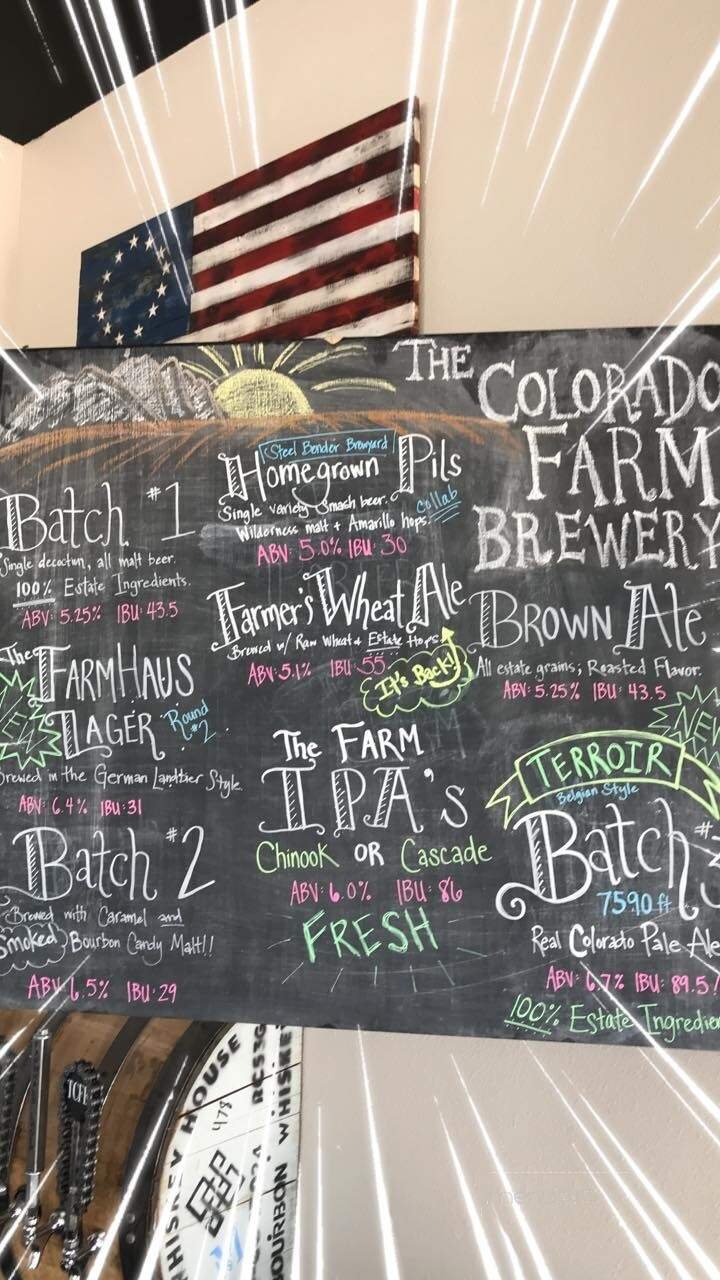 THE
COLORADO
FARM
BREWERY
Steel Bender Brewyard
Homegrown Pils
Single variety Smash beer.
Wilderness malt + Amarillo hops.
collab
ABV: 5.0% IBU: 30
Batch #1
Single decoction, all malt beer.
100% Estate Ingredients.
ABV: 5.25% IBU: 43.5
Farmer's Wheat Ale
Brewed w/ Raw Wheat + Estate Hops.
ABV: 5.1% IBU: 55
It's Back!
BROWN ALE
All estate grains; Roasted Flavor.
ABV: 5.25% IBU: 43.5
The FARMHAUS
LAGER
Round #2
Brewed in the German Landbier Style.
ABV: 6.4% IBU: 31
The FARM
IPA's
Chinook OR Cascade
ABV: 6.0% IBU: 86
FRESH
NEW
TERROIR
Belgian Style
Batch #
7590 ft
Real Colorado Pale Ale
ABV: 6.7% IBU: 89.5
100% Estate Ingredien
Batch #2
Brewed with Caramel and
Smoked Bourbon Candy Malt!!
ABV: 6.5% IBU: 29
TCFB
WHISKEY HOUSE
478
BOURBON WHISKE